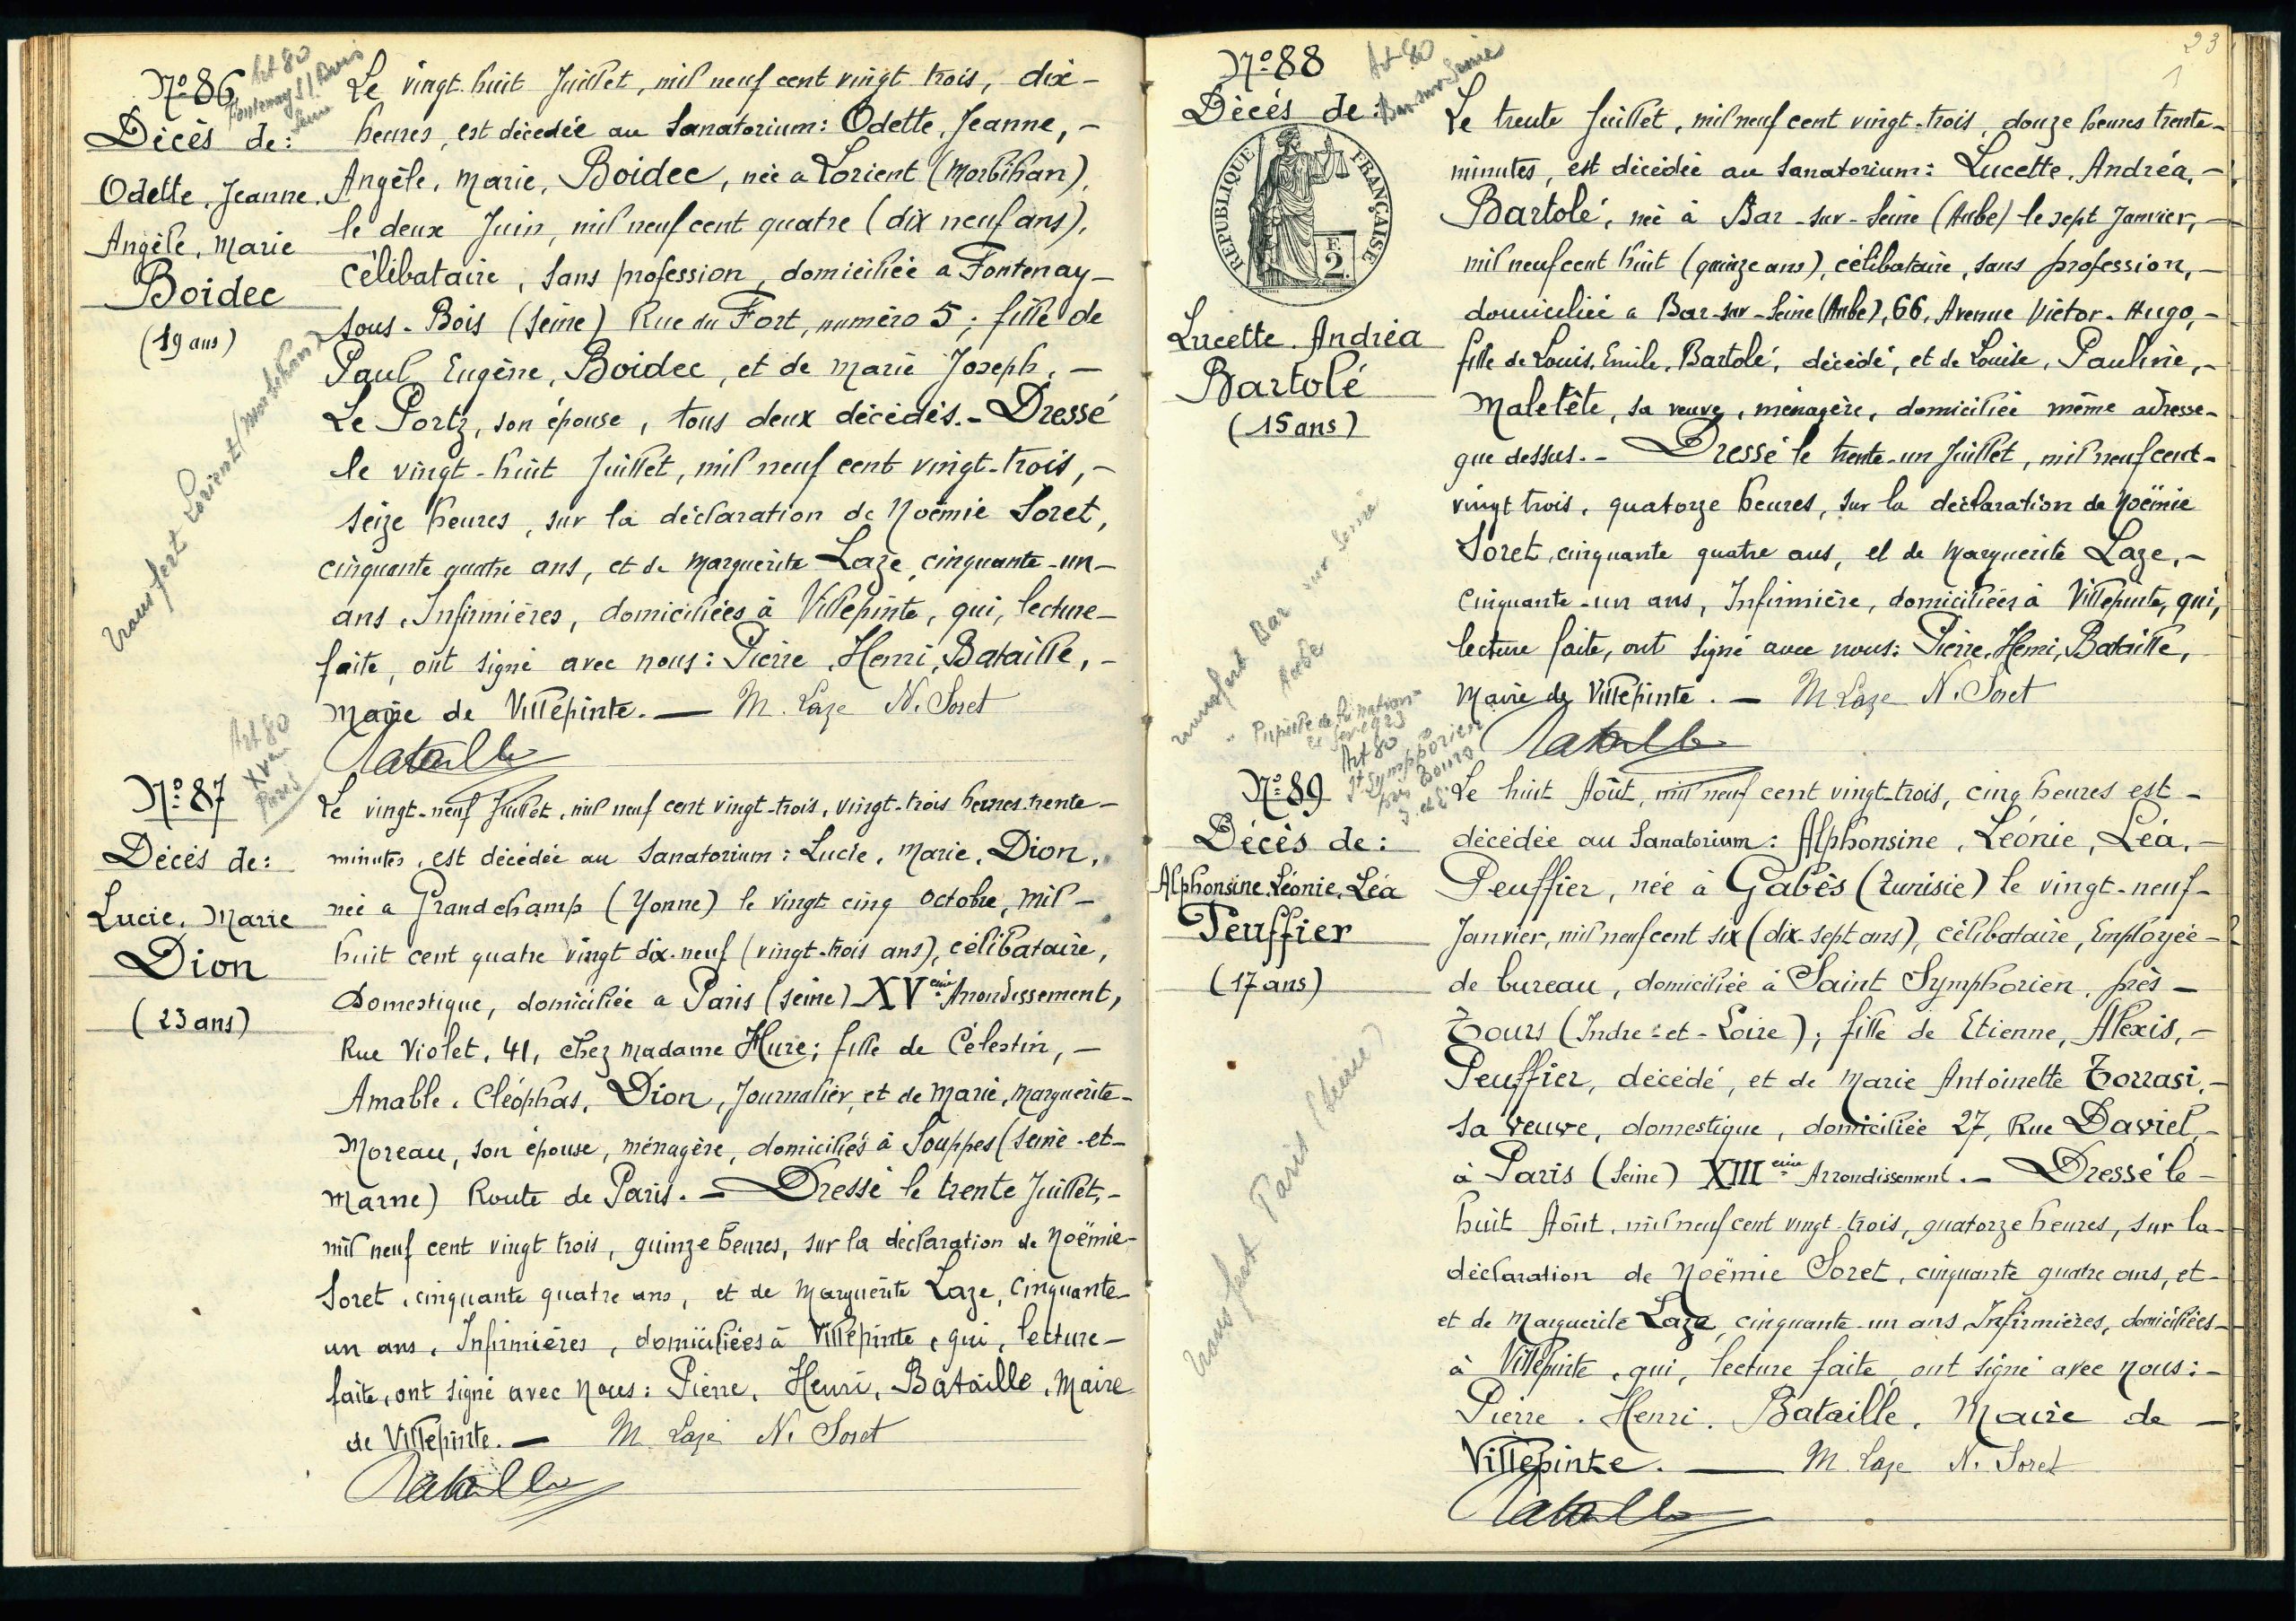 Nº 86
Art 80
Fontenay s/ Bois
Seine
Décès de:
Odette, Jeanne,
Angèle, Marie
Boidec
(19 ans)
Transfert Lorient (Morbihan)
Le vingt-huit Juillet, mil neuf cent vingt trois, dix-
heures, est décédée au Sanatorium: Odette, Jeanne, -
Angèle, Marie, Boidec, née à Lorient (Morbihan),
le deux Juin, mil neuf cent quatre (dix neuf ans),
célibataire, sans profession, domiciliée à Fontenay-
sous-Bois (Seine) Rue du Fort, numéro 5; fille de
Paul Eugène, Boidec, et de Marie Joseph, -
Le Portz, son épouse, tous deux décédés. - Dressé
le vingt-huit Juillet, mil neuf cent vingt-trois, -
seize heures, sur la déclaration de Noëmie Soret,
cinquante quatre ans, et de Marguerite Laze, cinquante-un-
ans, Infirmières, domiciliées à Villepinte, qui, lecture-
faite, ont signé avec nous: Pierre, Henri, Bataille, -
Maire de Villepinte. — M. Laze N. Soret
Bataille
Art 80
XVem
Paris
Nº 87
Décès de:
Lucie, Marie
Dion
(23 ans)
Le vingt-neuf Juillet, mil neuf cent vingt-trois, vingt-trois heures trente-
minutes, est décédée au Sanatorium: Lucie, Marie, Dion,
née à Grandchamp (Yonne) le vingt cinq Octobre, mil-
huit cent quatre vingt dix-neuf (vingt-trois ans), célibataire,
Domestique, domiciliée à Paris (Seine) XVème Arrondissement,
Rue Violet, 41, chez Madame Huré; fille de Célestin, -
Amable, Cléophas, Dion, Journalier, et de Marie, Marguerite-
Moreau, son épouse, ménagère, domiciliés à Souppes (Seine-et-
Marne) Route de Paris. - Dressé le trente Juillet, -
mil neuf cent vingt trois, quinze heures, sur la déclaration de Noëmie-
Soret, cinquante quatre ans, et de Marguerite Laze, cinquante-
un ans, Infirmières, domiciliées à Villepinte, qui, lecture-
faite, ont signé avec nous: Pierre, Henri, Bataille, Maire
de Villepinte. — M. Laze N. Soret
Bataille
23
Nº 88
Art 80
Bar-sur-Seine
Décès de:
RÉPUBLIQUE FRANÇAISE
F.
2.
Lucette Andréa
Bartolé
(15 ans)
transfert Bar sur Seine
Aube
Le trente Juillet, mil neuf cent vingt-trois, douze heures trente-
minutes, est décédée au Sanatorium: Lucette, Andréa, -
Bartolé, née à Bar-sur-Seine (Aube) le sept Janvier, -
mil neuf cent huit (quinze ans), célibataire, sans profession, -
domiciliée à Bar-sur-Seine (Aube), 66, Avenue Victor-Hugo, -
fille de Louis, Emile, Bartolé, décédé, et de Louise, Pauline, -
Maletête, sa veuve, ménagère, domiciliée même adresse-
que dessus. - Dressé le trente-un Juillet, mil neuf cent-
vingt trois, quatorze heures, sur la déclaration de Noëmie
Soret, cinquante quatre ans, et de Marguerite Laze, -
cinquante-un ans, Infirmière, domiciliées à Villepinte, qui,
lecture faite, ont signé avec nous: Pierre, Henri, Bataille,
Maire de Villepinte. — M. Laze N. Soret
Bataille
Pupille de la nation
1923
Art 80
St Symphorien
près Tours
I. et L.
Nº 89
Décès de:
Alphonsine, Léonie, Léa
Peuffier
(17 ans)
Transfert Paris (Seine)
Le huit Août, mil neuf cent vingt-trois, cinq heures est -
décédée au Sanatorium: Alphonsine, Léonie, Léa, -
Peuffier, née à Gabès (Tunisie) le vingt-neuf-
Janvier, mil neuf cent six (dix-sept ans), célibataire, Employée-
de bureau, domiciliée à Saint Symphorien, près -
Tours (Indre-et-Loire); fille de Etienne, Alexis, -
Peuffier, décédé, et de Marie Antoinette Torrasi, -
sa veuve, domestique, domiciliée 27, Rue Daviel, -
à Paris (Seine) XIIIème Arrondissement. - Dressé le -
huit Août, mil neuf cent vingt-trois, quatorze heures, sur la-
déclaration de Noëmie Soret, cinquante quatre ans, et-
et de Marguerite Laze, cinquante-un ans, Infirmières, domiciliées-
à Villepinte, qui, lecture faite, ont signé avec nous: -
Pierre, Henri, Bataille, Maire de —
Villepinte. — M. Laze N. Soret
Bataille